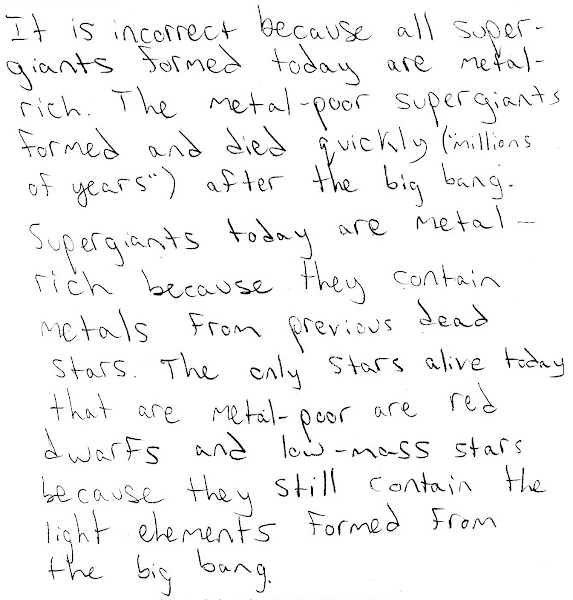 It is incorrect because all super-
giants formed today are metal-
rich. The metal-poor supergiants
formed and died quickly ("millions
of years") after the big bang.
Supergiants today are metal-
rich because they contain
metals from previous dead
stars. The only stars alive today
that are metal-poor are red
dwarfs and low-mass stars
because they still contain the
light elements formed from
the big bang.